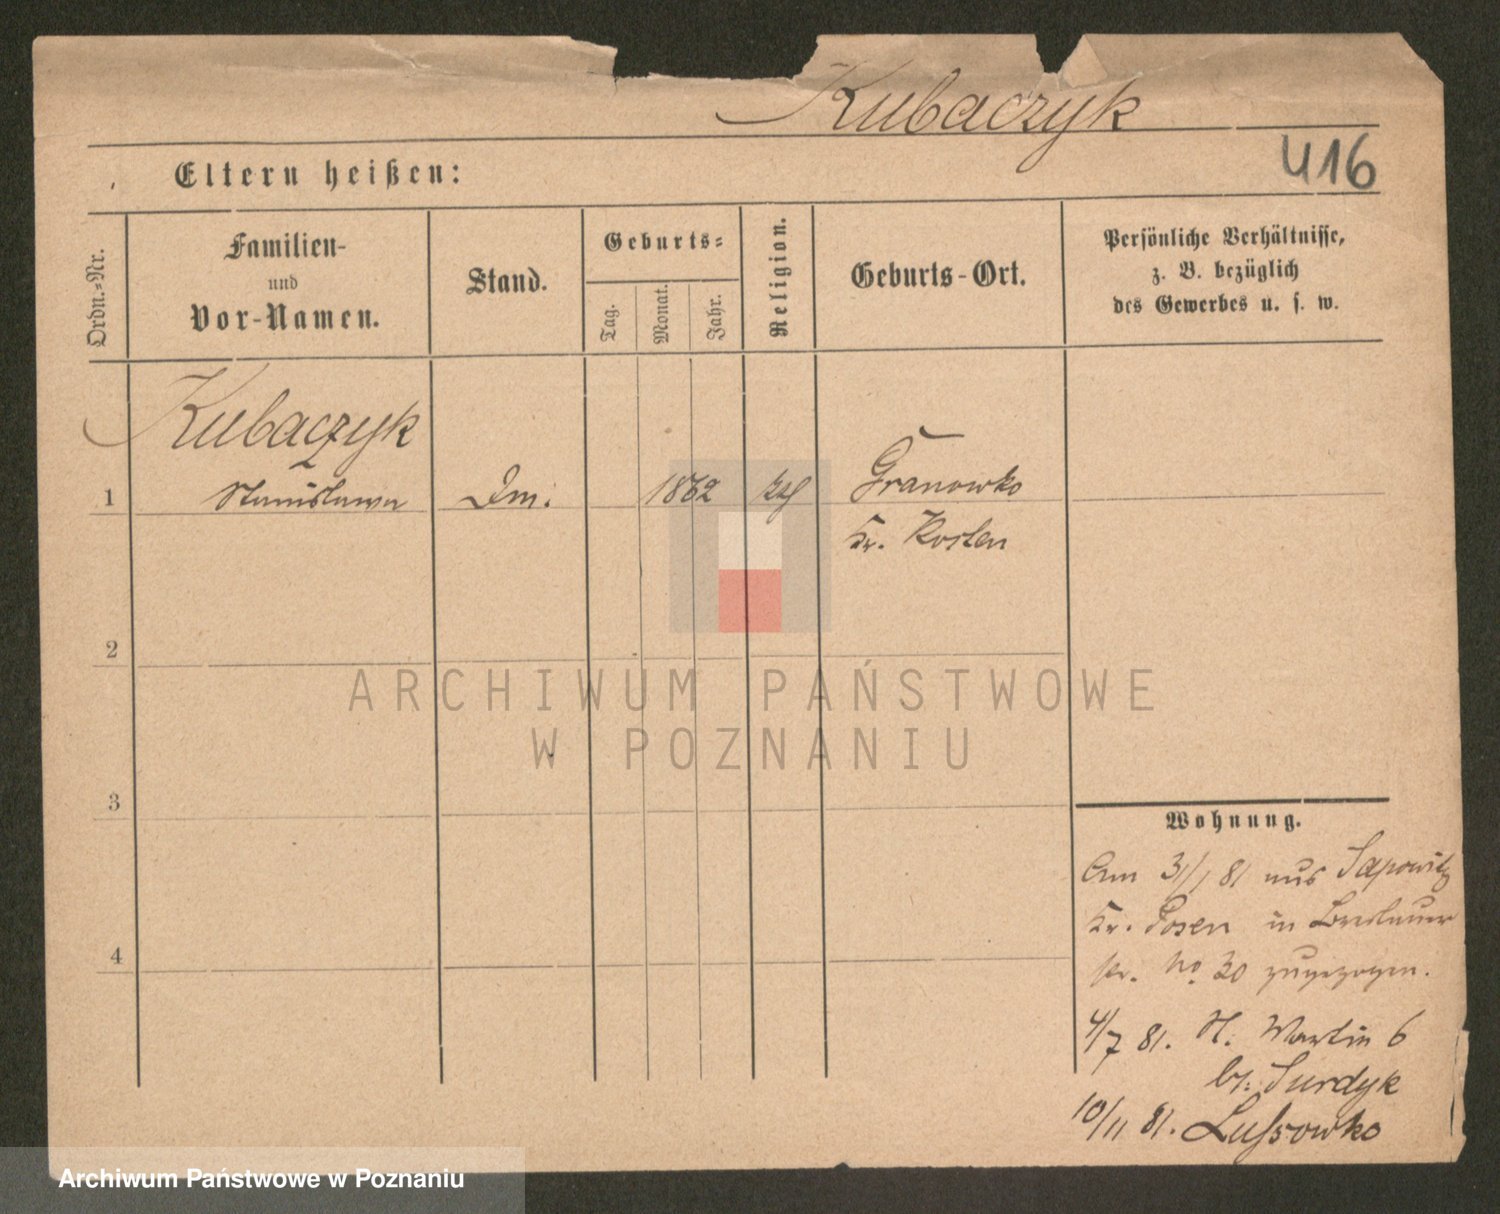 Kubaczyk
416
Eltern heißen:
Ordn.-Nr.
Familien-
und
Vor-Namen.
Stand.
Geburts-
Tag.
Monat.
Jahr.
Religion.
Geburts-Ort.
Persönliche Verhältnisse,
z. B. bezüglich
des Gewerbes u. s. w.
Kubaczyk
1 Stanislawa Dm. 1862 kth Granowko
Kr. Kosten
2
ARCHIWUM PAŃSTWOWE
W POZNANIU
3
4
Wohnung.
Am 31/1 81 aus Sapowitz
Kr. Posen in Breslauer
str. No. 30 zugezogen.
4/7 81. St. Martin 6
b/. Surdyk
10/11 81. Lussowko
Archiwum Państwowe w Poznaniu